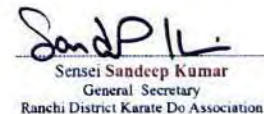 Sensei Sandeep Kumar
General Secretary
Ranchi District Karate Do Association